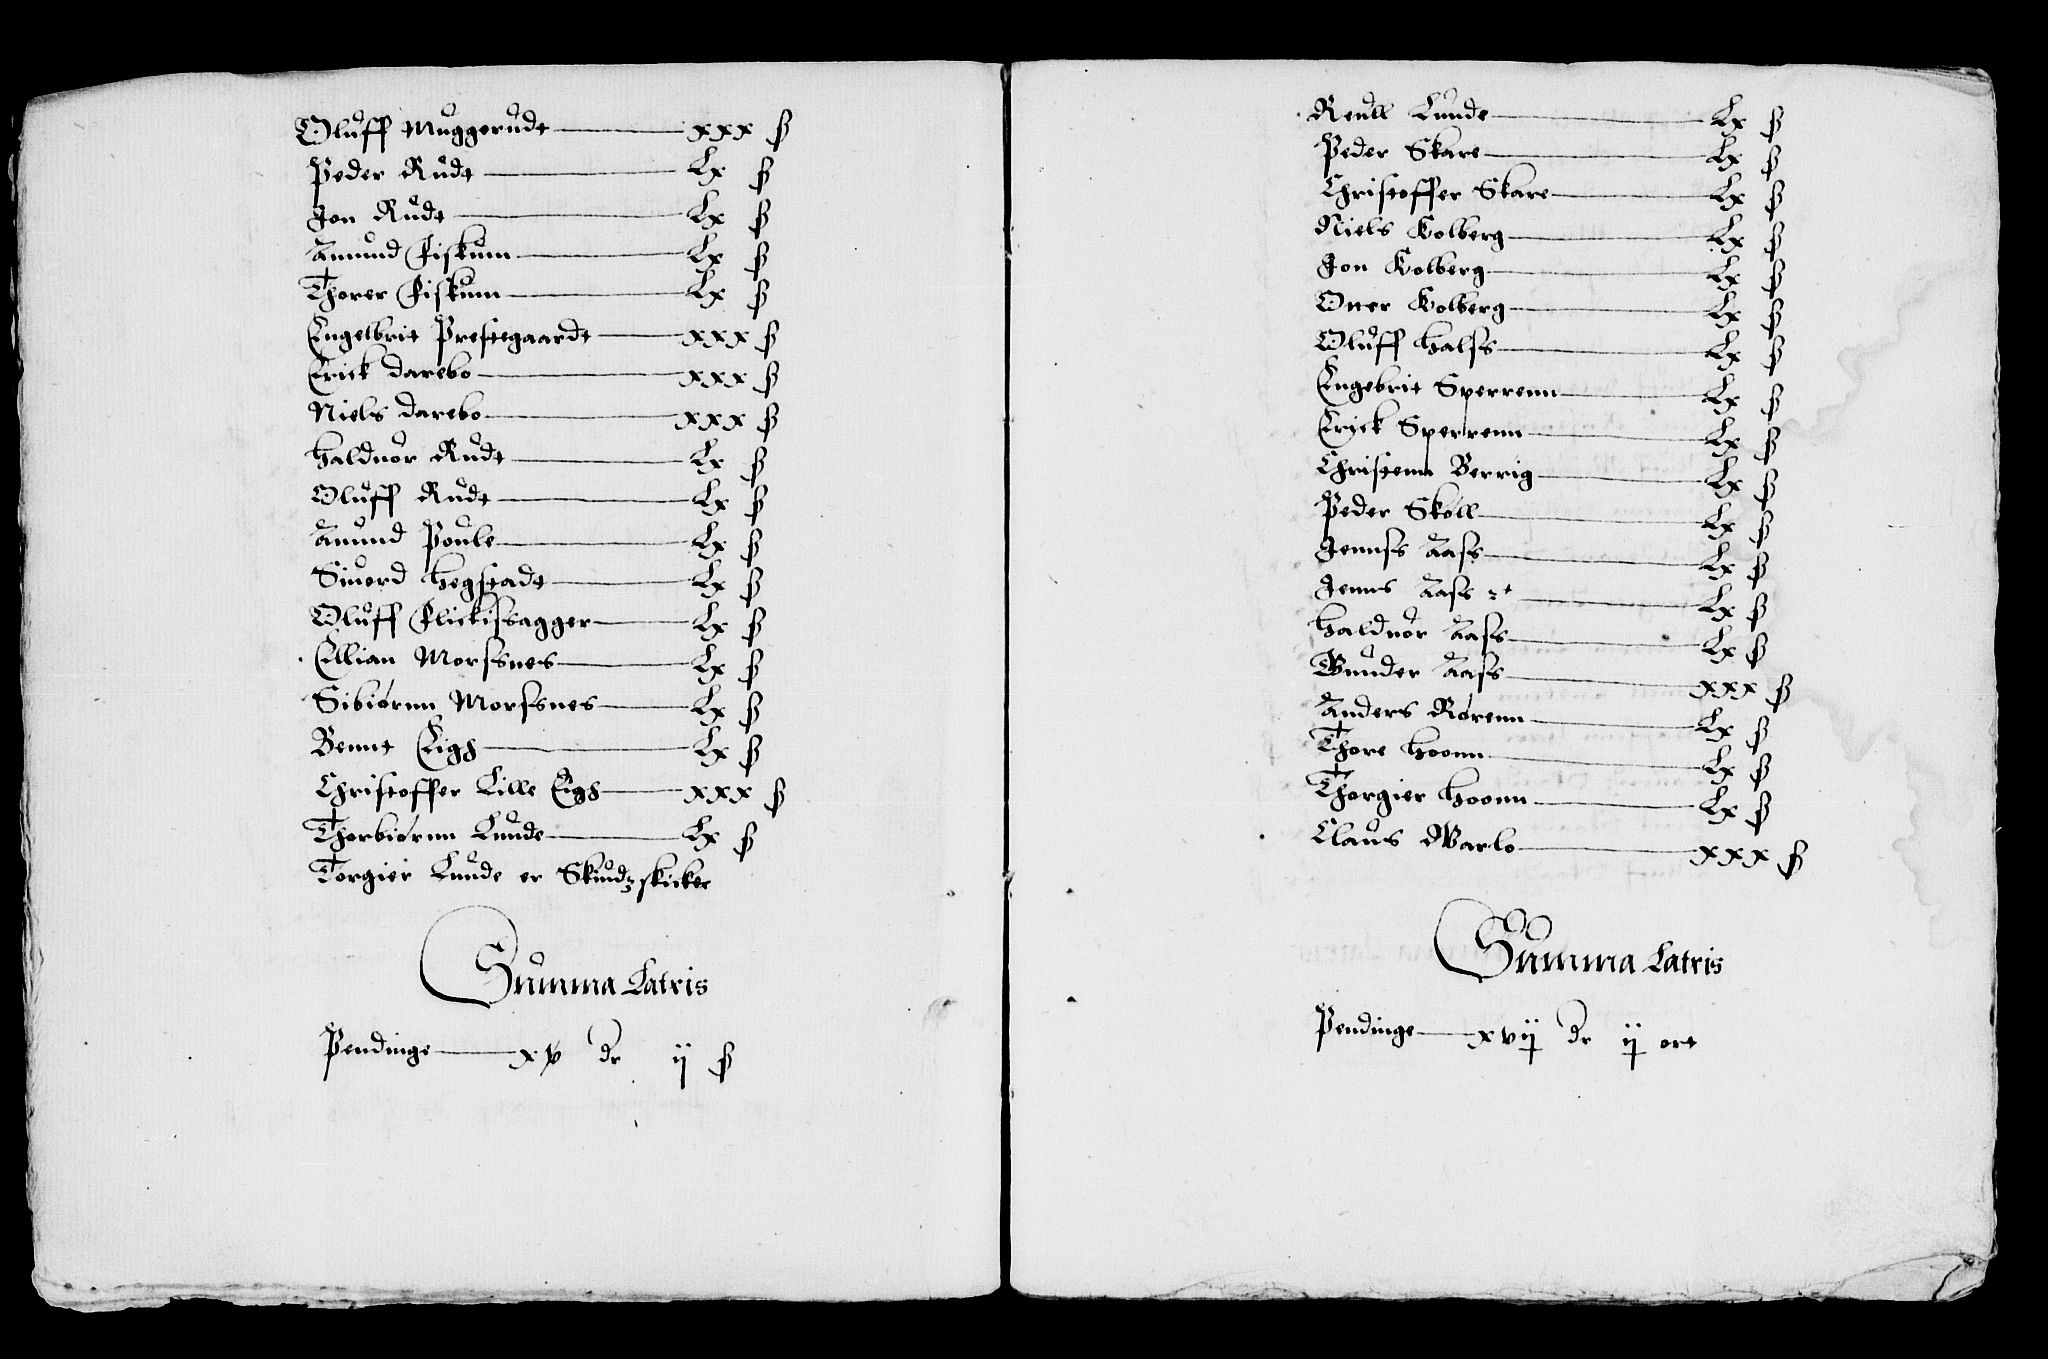 Oluff Muggerudt xxx ß
Peder Rudt Lx ß
Jon Rudt Lx ß
Amund Fiskum Lx ß
Thorer Fiskum Lx ß
Engelbrit Prestegaardt xxx ß
Erick Darebo xxx ß
Niels Darebo xxx ß
Halduor Rudt Lx ß
Oluff Rudt Lx ß
Amund Poule Lx ß
Siuord Hegstadt Lx ß
Oluff Flickissagger Lx ß
Ellian Morssnes Lx ß
Sibiørnn Morssnes Lx ß
Bennt Eigh Lx ß
Christoffer Lille Eigh xxx ß
Thorbiørnn Lunde Lx ß
Torgier Lunde er Skudzskicker
Summa Latris
Pendinge xv dr ij ß
Reull Lunde Lx ß
Peder Skare Lx ß
Christoffer Skare Lx ß
Niels Kolberg Lx ß
Jon Kolberg Lx ß
Otter Kolberg Lx ß
Oluff Halss Lx ß
Engebrit Sperrenn Lx ß
Eryck Sperrenn Lx ß
Christenn Berrig Lx ß
Peder Skoll Lx ß
Jennss Aass Lx ß
Jenns Aass Lx ß
Halduor Aass Lx ß
Gunder Aass xxx ß
Anders Rørenn Lx ß
Thore Hoonn Lx ß
Thorgier Hoonn Lx ß
Claus Warlo xxx ß
Summa Latris
Pendinge xvij dr ij ort